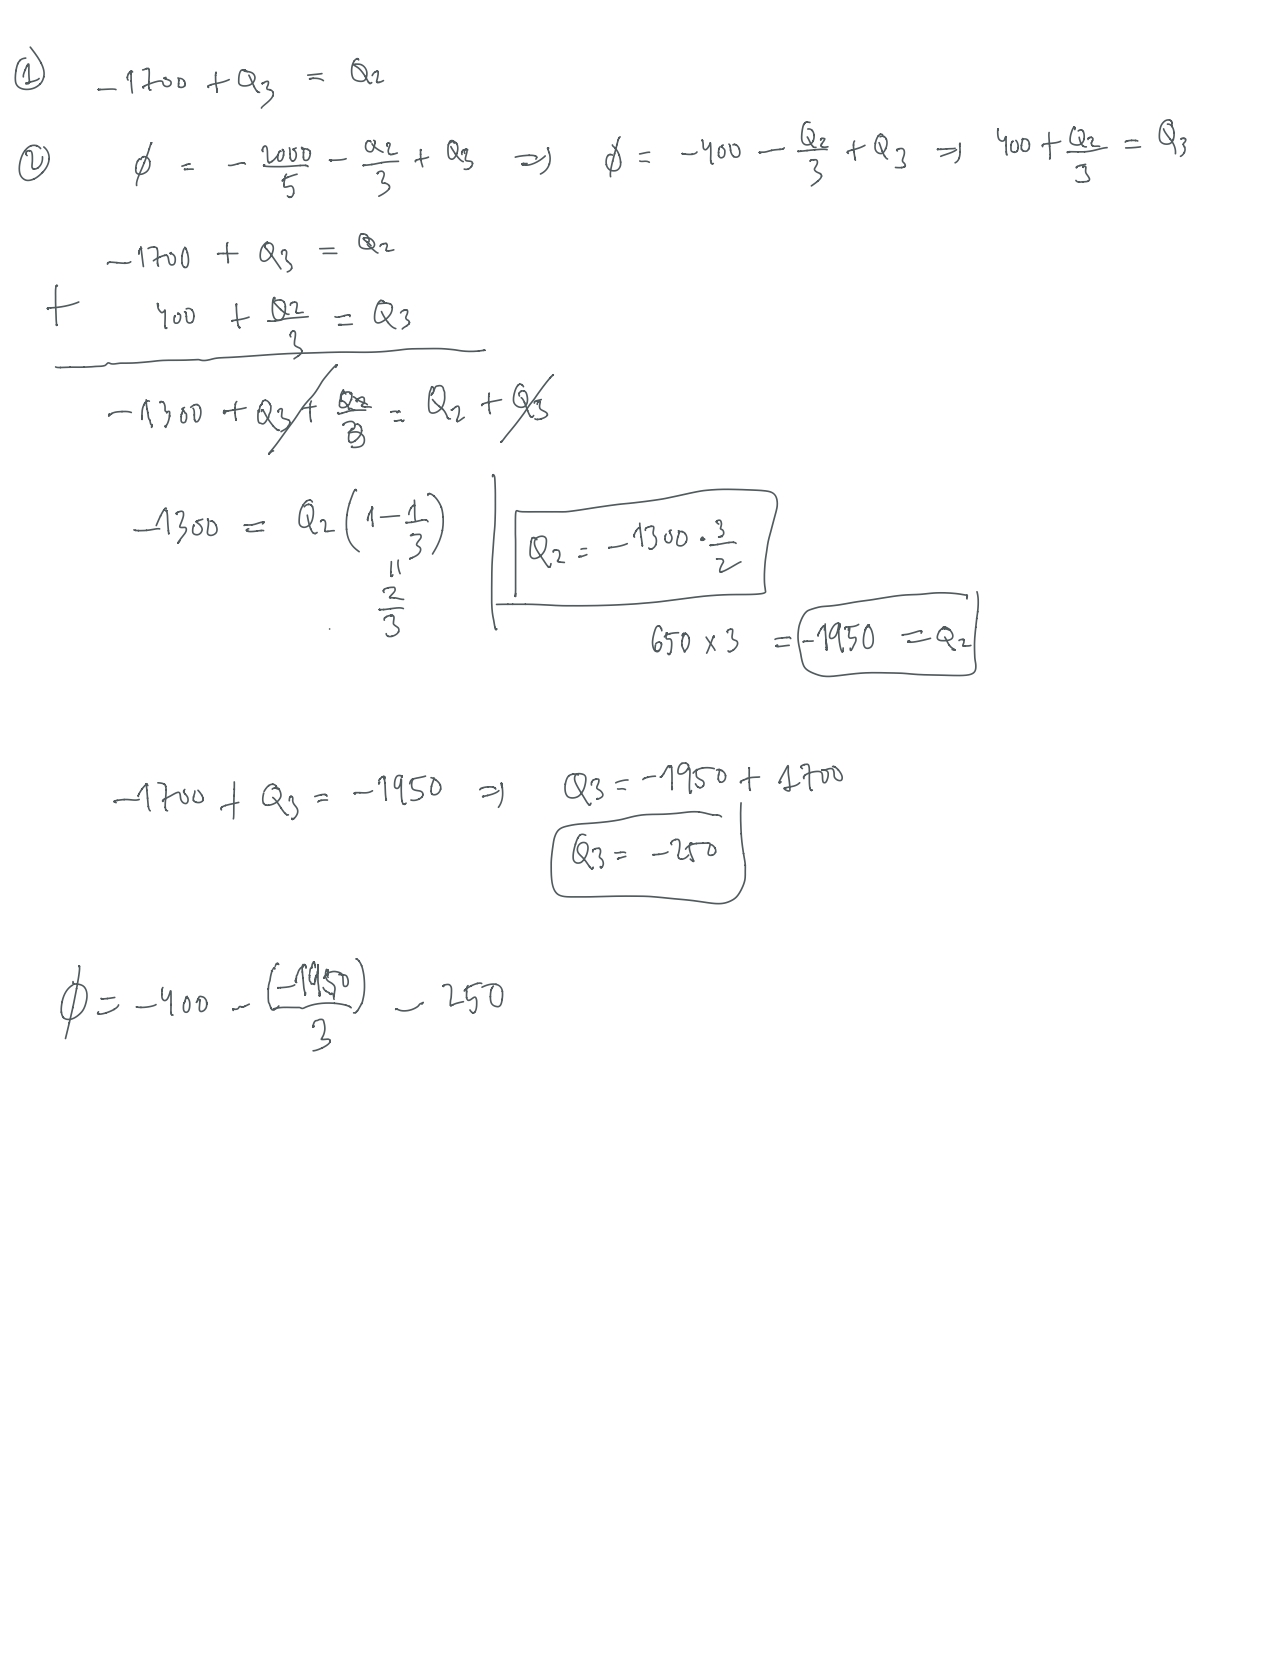 ① -1700 + Q3 = Q2
② ϕ = - 2000/5 - Q2/3 + Q3 => ϕ = -400 - Q2/3 + Q3 => 400 + Q2/3 = Q3
-1700 + Q3 = Q2
+ 400 + Q2/3 = Q3
-1300 + Q3 + Q2/3 = Q2 + Q3
-1300 = Q2 (1 - 1/3) | Q2 = -1300 · 3/2
= 2/3
650 x 3 = -1950 = Q2
-1700 + Q3 = -1950 => Q3 = -1950 + 1700
Q3 = -250
ϕ = -400 - (-1950)/3 - 250